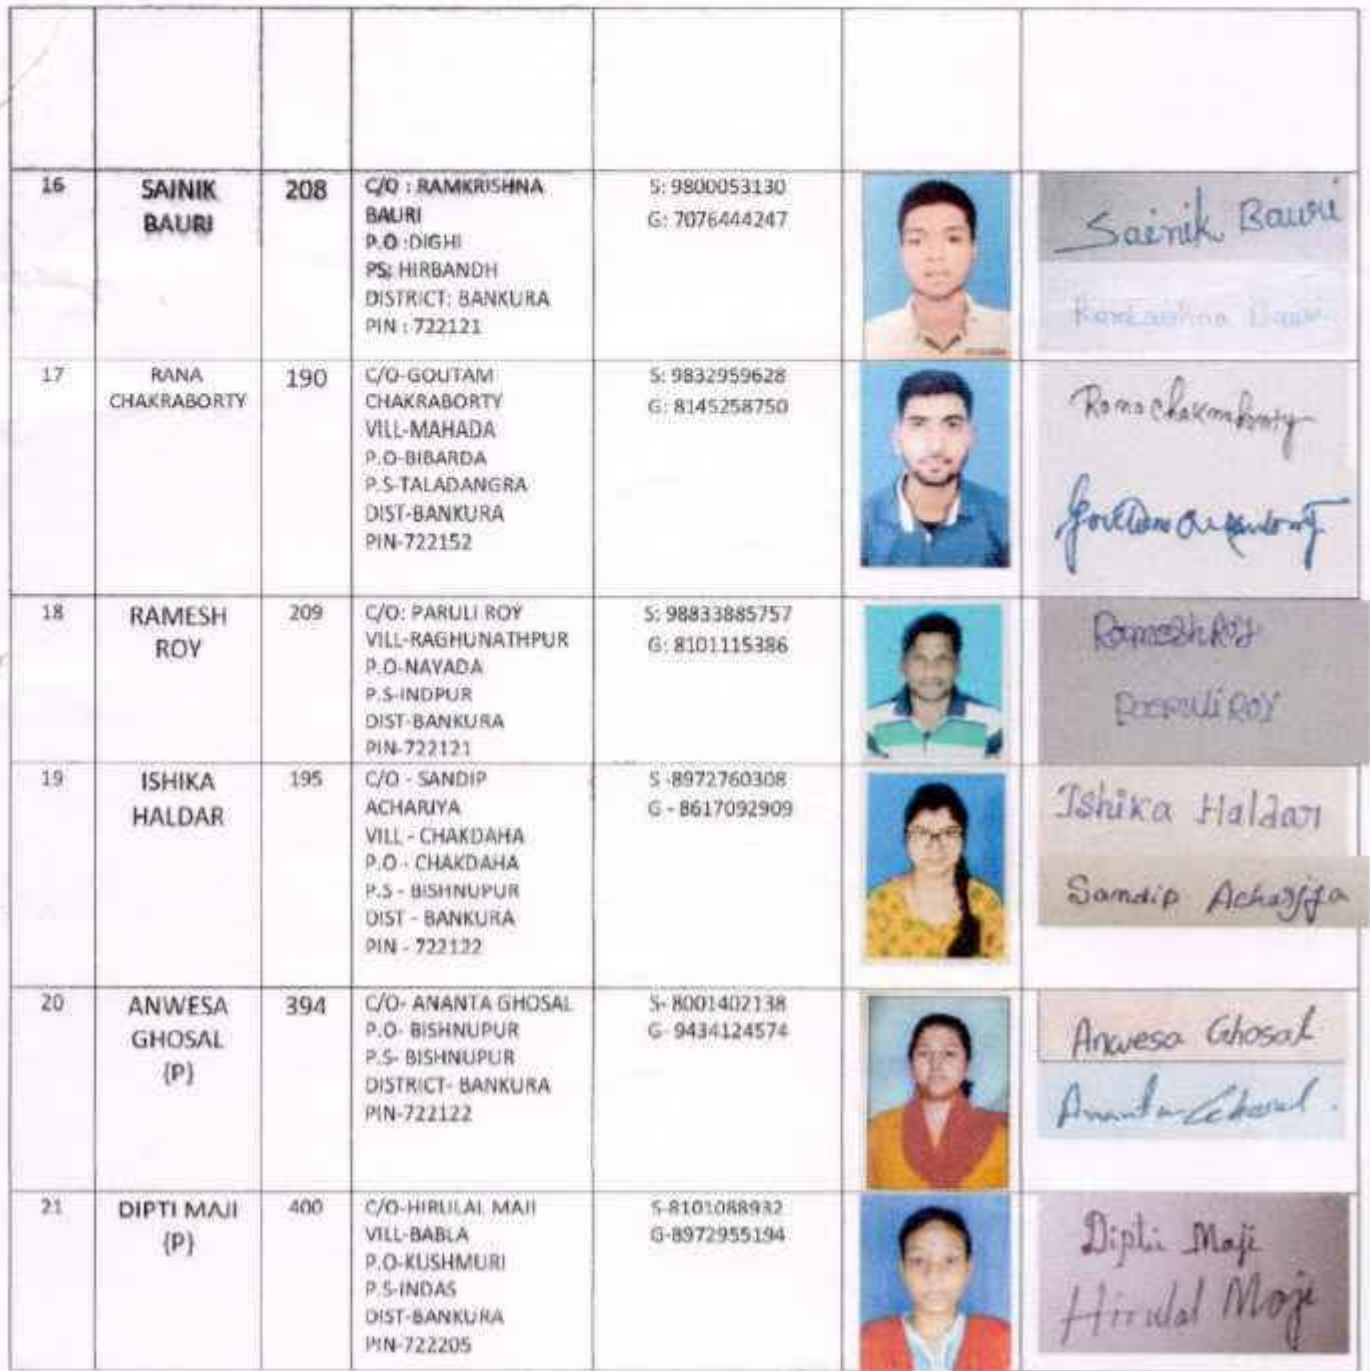 16
SAINIK
BAURI
208
C/O : RAMKRISHNA
BAURI
P.O :DIGHI
PS: HIRBANDH
DISTRICT: BANKURA
PIN : 722121
S: 9800053130
G: 7076444247
Sainik Bauri
17
RANA
CHAKRABORTY
190
C/O-GOUTAM
CHAKRABORTY
VILL-MAHADA
P.O-BIBARDA
P.S-TALADANGRA
DIST-BANKURA
PIN-722152
S: 9832959628
G: 8145258750
18
RAMESH
ROY
209
C/O: PARULI ROY
VILL-RAGHUNATHPUR
P.O-NAYADA
P.S-INDPUR
DIST-BANKURA
PIN-722121
S: 98833885757
G: 8101115386
Ramesh Roy
ROY
19
ISHIKA
HALDAR
195
C/O - SANDIP
ACHARJYA
VILL - CHAKDAHA
P.O - CHAKDAHA
P.S - BISHNUPUR
DIST - BANKURA
PIN - 722122
S -8972760308
G - 8617092909
Ishika Haldar
Sandip Acharjya
20
ANWESA
GHOSAL
(P)
394
C/O- ANANTA GHOSAL
P.O- BISHNUPUR
P.S- BISHNUPUR
DISTRICT- BANKURA
PIN-722122
S- 8001402138
G- 9434124574
Anwesa Ghosal
Ananta Ghosal.
21
DIPTI MAJI
(P)
400
C/O-HIRULAL MAJI
VILL-BABLA
P.O-KUSHMURI
P.S-INDAS
DIST-BANKURA
PIN-722205
S-8101088932
G-8972955194
Dipti Maji
Hirulal Maji